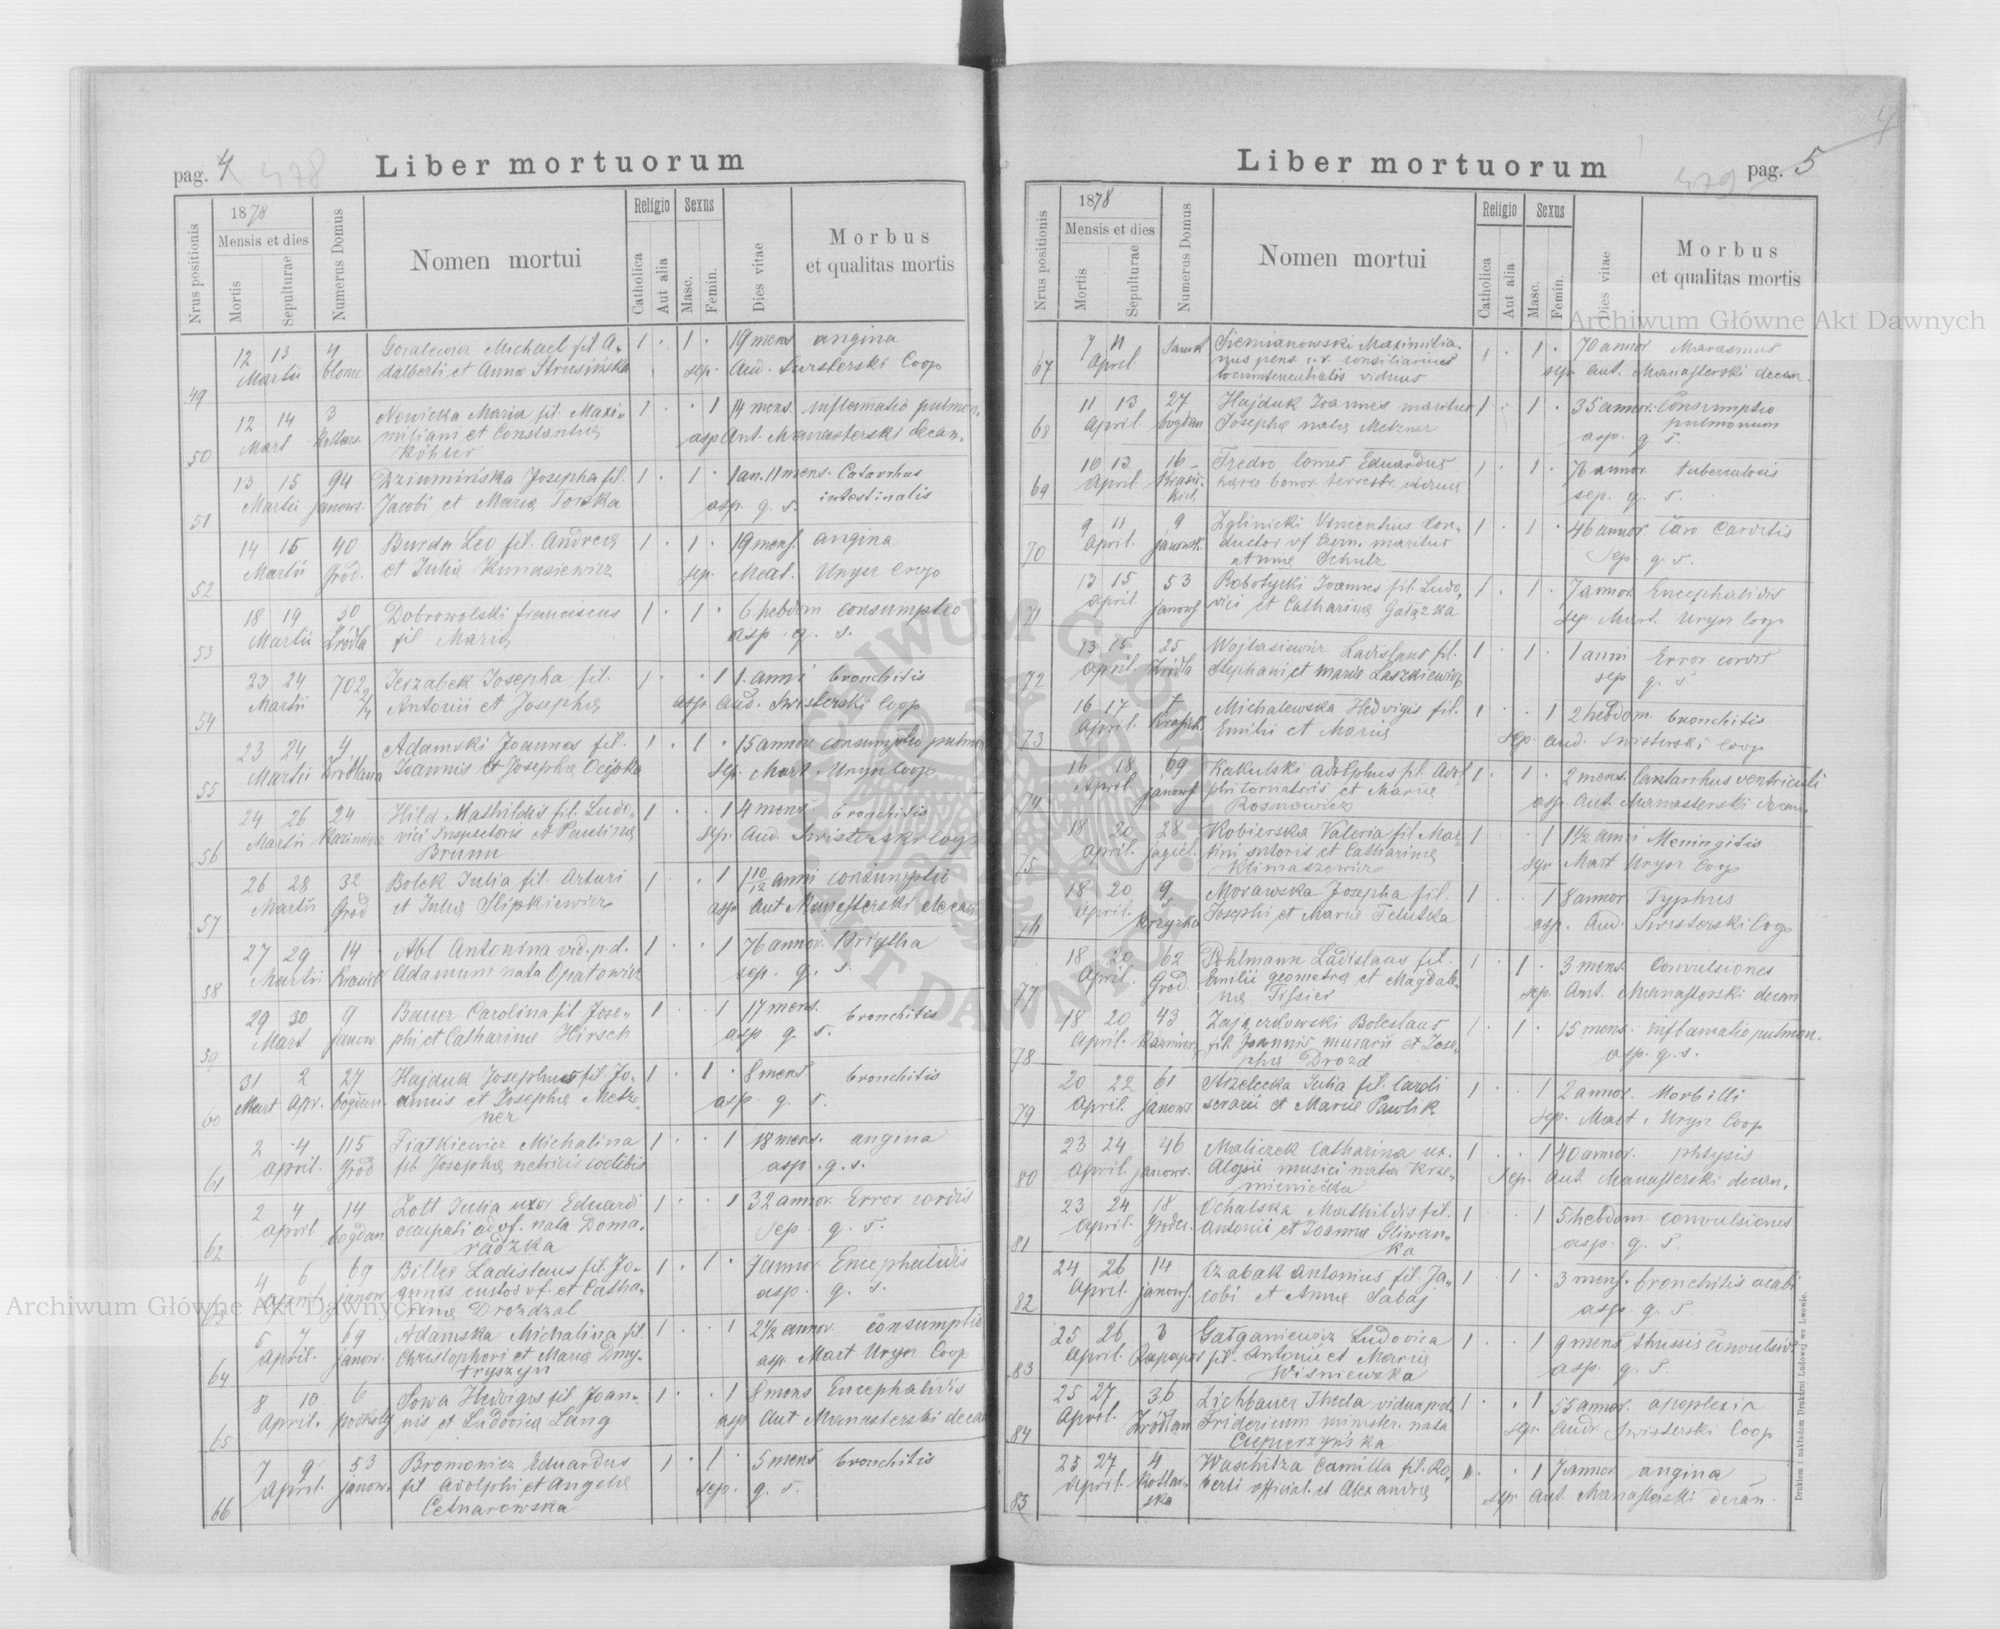 pag. 4
Liber mortuorum
Nrus positionis
1878
Mensis et dies
Mortis
Sepulturae
Numerus Domus
Nomen mortui
Religio
Catholica
Aut alia
Sexus
Masc.
Femin.
Dies vitae
Morbus
et qualitas mortis
49 12 13 4 Goralewicz Michael fil A- 1 · 1 · 19 mens angina
Martii dalberti et Anna sep. Aud. Coop
50 12 14 3 Nowicka Maria fil. Maxi- 1 · · 1 14 mens. inflamatio pulmon.
Mart miliani et Constantia asp Ant. Manasterski decan.
Köhler
51 13 15 94 Dziumińska Josepha fil. 1 · 1 · 1 an. 11 mens. Catarrhus
Martii janows. Jacobi et Maria Torska asp. q. s. intestinalis
52 14 15 40 Burda Leo fil. Andrea 1 · 1 · 19 mens. angina
Martii Grod. et Julia Kunasiewicz sep. Mart. Uryga Coop
53 18 19 30 Dobrowolski franciscus 1 · 1 · 6 hebdom consumptio
Martii Źródla fil Maria asp. q. s.
54 23 24 702 2/4 Jerzabek Josepha fil. 1 · · 1 1. anni bronchitis
Martii Antonii et Josepha asp Aud. Swisterski Coop
55 23 24 4 Adamski Joannes fil. 1 · 1 · 15 annor consumptio pulmon
Martii Zrodlana Joannis et Josepha Ocipka sep. Mart Uryga Coop
56 24 26 24 Hild Mathildis fil. Ludo- 1 · · 1 4 mens bronchitis
Martii Kazimierz vici Inspectoris et Paulina sep. Aud. Swisterski Coop
Brunn
57 26 28 32 Bolek Julia fil. Arturi 1 · · 1 1 10/12 anni consumptio
Martii Grod et Julia Slipkiewicz asp Ant Manasterski decan
58 27 29 14 Abl Antonina vid. p. d. 1 · · 1 76 annor. Brigtha
Martii Adamum nata Opatowicz sep. q. s.
59 29 30 9 Bauer Carolina fil Jose- 1 · · 1 17 mens. bronchitis
Mart janow. phi et Catharina Hirsch asp q. s.
60 31 2 27 Hajduk Josephus fil Jo- 1 · 1 · 8 mens bronchitis
Mart Apr. bogdan. annis et Josepha Metz- asp. q. s.
ner
61 2 4 115 Fiałkiewicz Michalina 1 · · 1 18 mens. angina
april. Grod fil. Josepha netricis coelibis asp. q. s.
62 2 4 14 Zolt Julia uxor Eduardi 1 · · 1 32 annor. Error cordis
april. bogdan occupati ad vf. nata Doma- sep. q. s.
radzka
63 4 6 69 Biller Ladislaus fil. Jo- 1 · 1 · 7 annor Encephalidis
april. janow annis custos vf. et Catha- asp. q. s.
rina Drozdzal
64 5 7 69 Adamska Michalina fil. 1 · · 1 2½ annor. consumptio
April. janow. Christophori et Maria Dmy- asp. Mart Uryga Coop
tryszyn
65 8 10 6 Sowa Hedvigis fil Joan- 1 · · 1 8 mens Encephalidis
April. nis et Ludovica Lang asp Aut Manasterski decan
66 7 9 53 Bromowicz Eduardus 1 · 1 · 5 mens bronchitis
April. janow. fil Adolphi et Angela sep. q. s.
Cetnarowska
Liber mortuorum
pag. 5
Nrus positionis
1878
Mensis et dies
Mortis
Sepulturae
Numerus Domus
Nomen mortui
Religio
Catholica
Aut alia
Sexus
Masc.
Femin.
Dies vitae
Morbus
et qualitas mortis
67 7 11 Siemianowski Maximilia- 1 · 1 · 70 annor Marasmus
April nus pens. c.r. consiliarius sep Ant. Manasterski decan.
locumtenentialis viduus
68 11 13 27 Hajduk Joannes maritus 1 · 1 · 35 annor. Consumptio
April bogdan Josepha nata Metzner asp. q. s. pulmonum
69 10 13 16 Fredro Comes Eduardus 1 · 1 · 76 annor. tuberculosis
April haeres bonor. terrestr. sep. q. s.
70 9 11 9 Zglinicki Vincentius Con- 1 · 1 · 46 annor
April. janowsk. ductor vf Cern. maritus sep. q. s.
Schulz
71 13 15 53 Robotycki Joannes fil. Ludo- 1 · 1 · 7 annor Encephalidis
April. janows vici et Catharina Gałązka sep. Mart. Uryga Coop
72 13 15 25 Wojtasiewicz Ladislaus fil. 1 · 1 · 1 anni Error cordis
April. Zridla Stephani et Maria Laszkiewicz sep q. s.
73 16 17 7 Michalewska Hedvigis fil. 1 · · 1 2 hebdom. bronchitis
April. Emilii et Maria sep. Aud. Swisterski Coop
74 16 18 69 Kukulski Adolphus fil. Adol- 1 · 1 · 2 mens. Cattarrhus ventriculi
April janows phi tornatoris et Maria asp Aut. Manasterski decan.
Rosnowicz
75 18 20 28 Kobierska Valeria fil Mar- 1 · · 1 1½ anni Meningitis
April. jagiel. tini sutoris et Catharina sep Mart Uryga Coop
Klimaszewicz
76 18 20 9 Morawska Josepha fil. 1 · · 1 8 annor. Typhus
April. Krzyzka Josephi et Maria Telutka asp. Aud. Swisterski Coop
77 18 20 62 Pohlmann Ladislaus fil. 1 · 1 · 3 mens. Convulsiones
April Grod. Emilii geometra et Magdale- sep. Ant. Manasterski decan
na Tissier
78 18 20 43 Zajączkowski Boleslaus 1 · 1 · 15 mens. inflamatio pulmon.
April. Kazimierz. fil. Joannis murarii et Jose- asp. q. s.
pha Drozd
79 20 22 61 Strzelecka Julia fil. Caroli 1 · · 1 2 annor. Morbilli
April. janows. serarii et Maria Pawlik sep. Mart. Uryga Coop
80 23 24 46 Maliczek Catharina ux. 1 · · 1 40 annor. phtysis
April. janows. Aloysii musici nata Krze- sep. Aut Manasterski decan.
mieniecka
81 23 24 18 Ochalska Mathildis fil. 1 · · 1 5 hebdom. convulsiones
April. Grodec. Antonii et Joanna Gliwan- asp. q. s.
ka
82 24 26 14 Czabak Antonius fil. Ja- 1 · 1 · 3 mens. bronchitis
April. janows. cobi et Anna Sabaj asp q. s.
83 25 26 3 Gałganiewicz Ludovica 1 · · 1 9 mens thussis convulsiv
April. Rapapor fil. Antonii et Maria asp. q. s.
Wiśniewska
84 25 27 36 Lichbauer Thecla vidua p.d. 1 · · 1 55 annor. apoplexia
April. Źródlan Fridericum minster. nata sep. Aud. Swisterski Coop
Ciepierzyńska
85 25 27 4 Waschitza Camilla fil. Ro- 1 · · 1 7 annor angina
April. Kotlar- berti official. et Alexandra sep Ant. Manasterski decan.
ska
Drukiem i nakładem Drukarni Ludowej we Lwowie.
Archiwum Główne Akt Dawnych
Archiwum Główne Akt Dawnych
ARCHIWUM GŁÓWNE AKT DAWNYCH